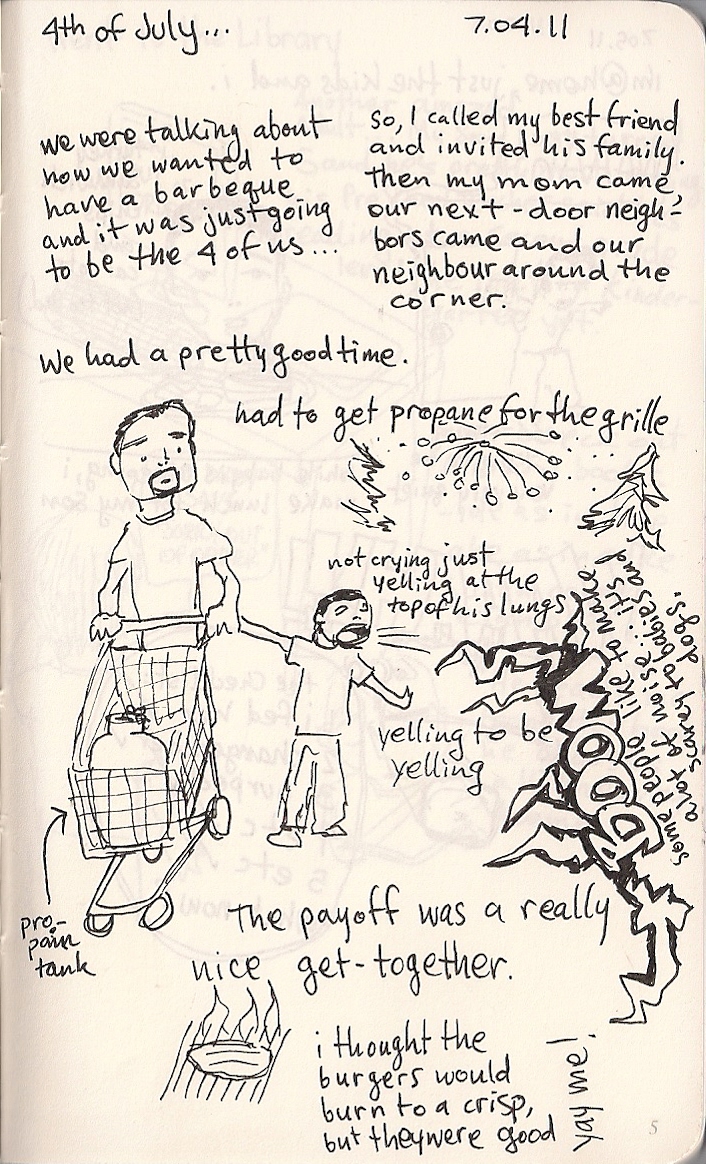 4th of July...
7.04.11
we were talking about
how we wanted to
have a barbeque
and it was just going
to be the 4 of us...
So, I called my best friend
and invited his family.
then my mom came
our next-door neigh-
bors came and our
neighbour around the
corner.
We had a pretty good time.
had to get propane for the grille
not crying just
yelling at the
top of his lungs
yelling to be
yelling
some people like to make
a lot of noise... it's
scarey to babies and
dogs.
pro-
pain
tank
The payoff was a really
nice get-together.
i thought the
burgers would
burn to a crisp,
but they were good
yay me!
5